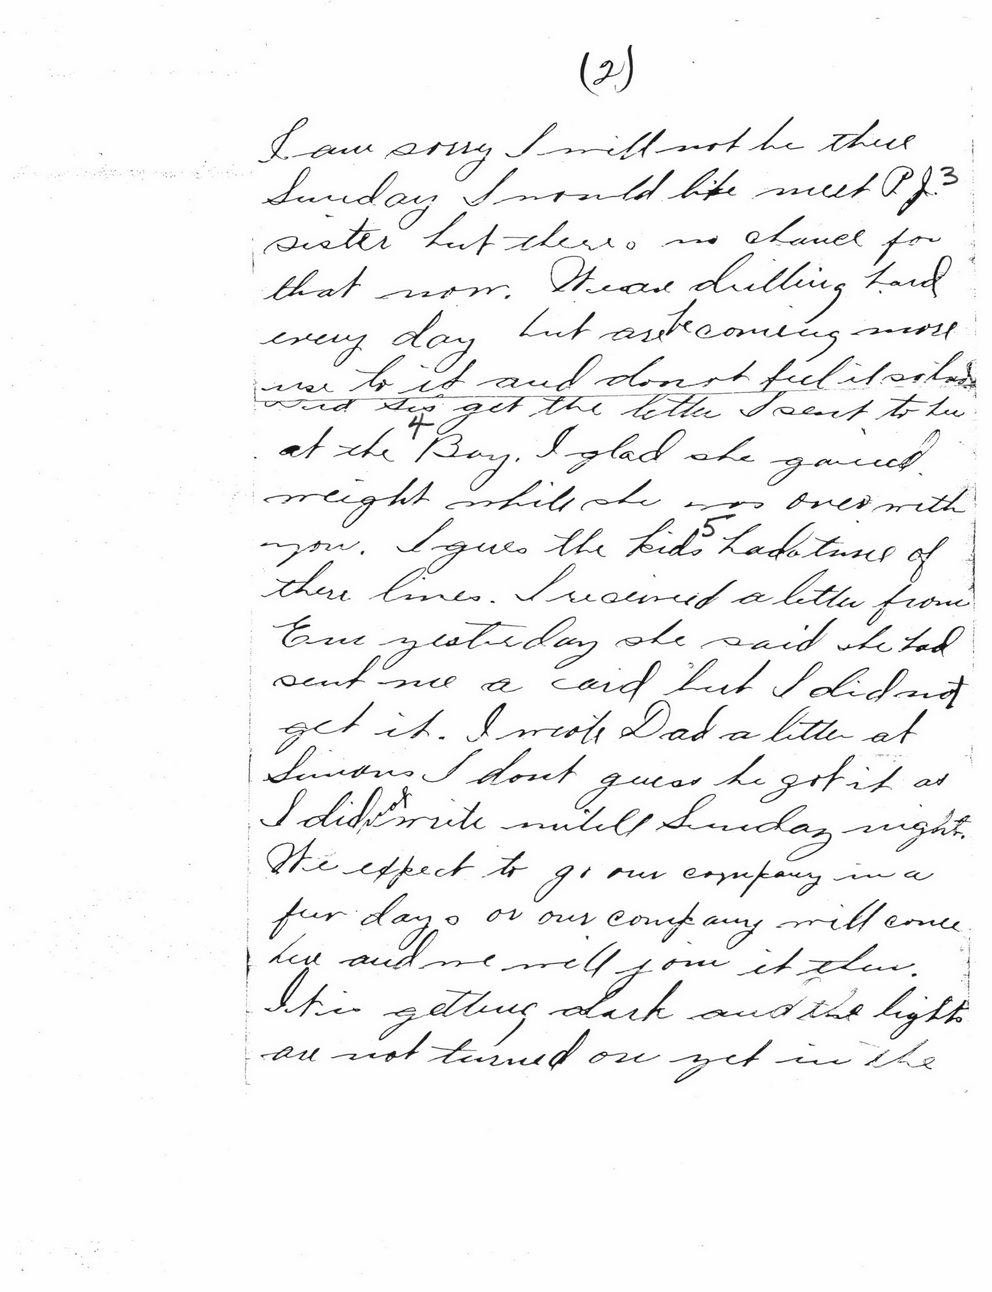 (2)
I am sorry I will not be there
Sunday I would like meet P.J.3
sister but theres no chance for
that now. We are drilling hard
every day but are becoming more
use to it and do not feel it so bad
Did Sis get the letter I sent to her
at the 4 Bay. I glad she gained
weight while she was over with
you. I gues the kids5 had a time of
there lives. I received a letter from
Em yesterday she said she had
sent me a card but I did not
get it. I wrote Dad a letter at
Simons I dont guess he got it as
I did not write untill Sunday night.
We expect to go our company in a
few days or our company will come
here and we will join it then.
It is getting dark and the lights
are not turned on yet in the